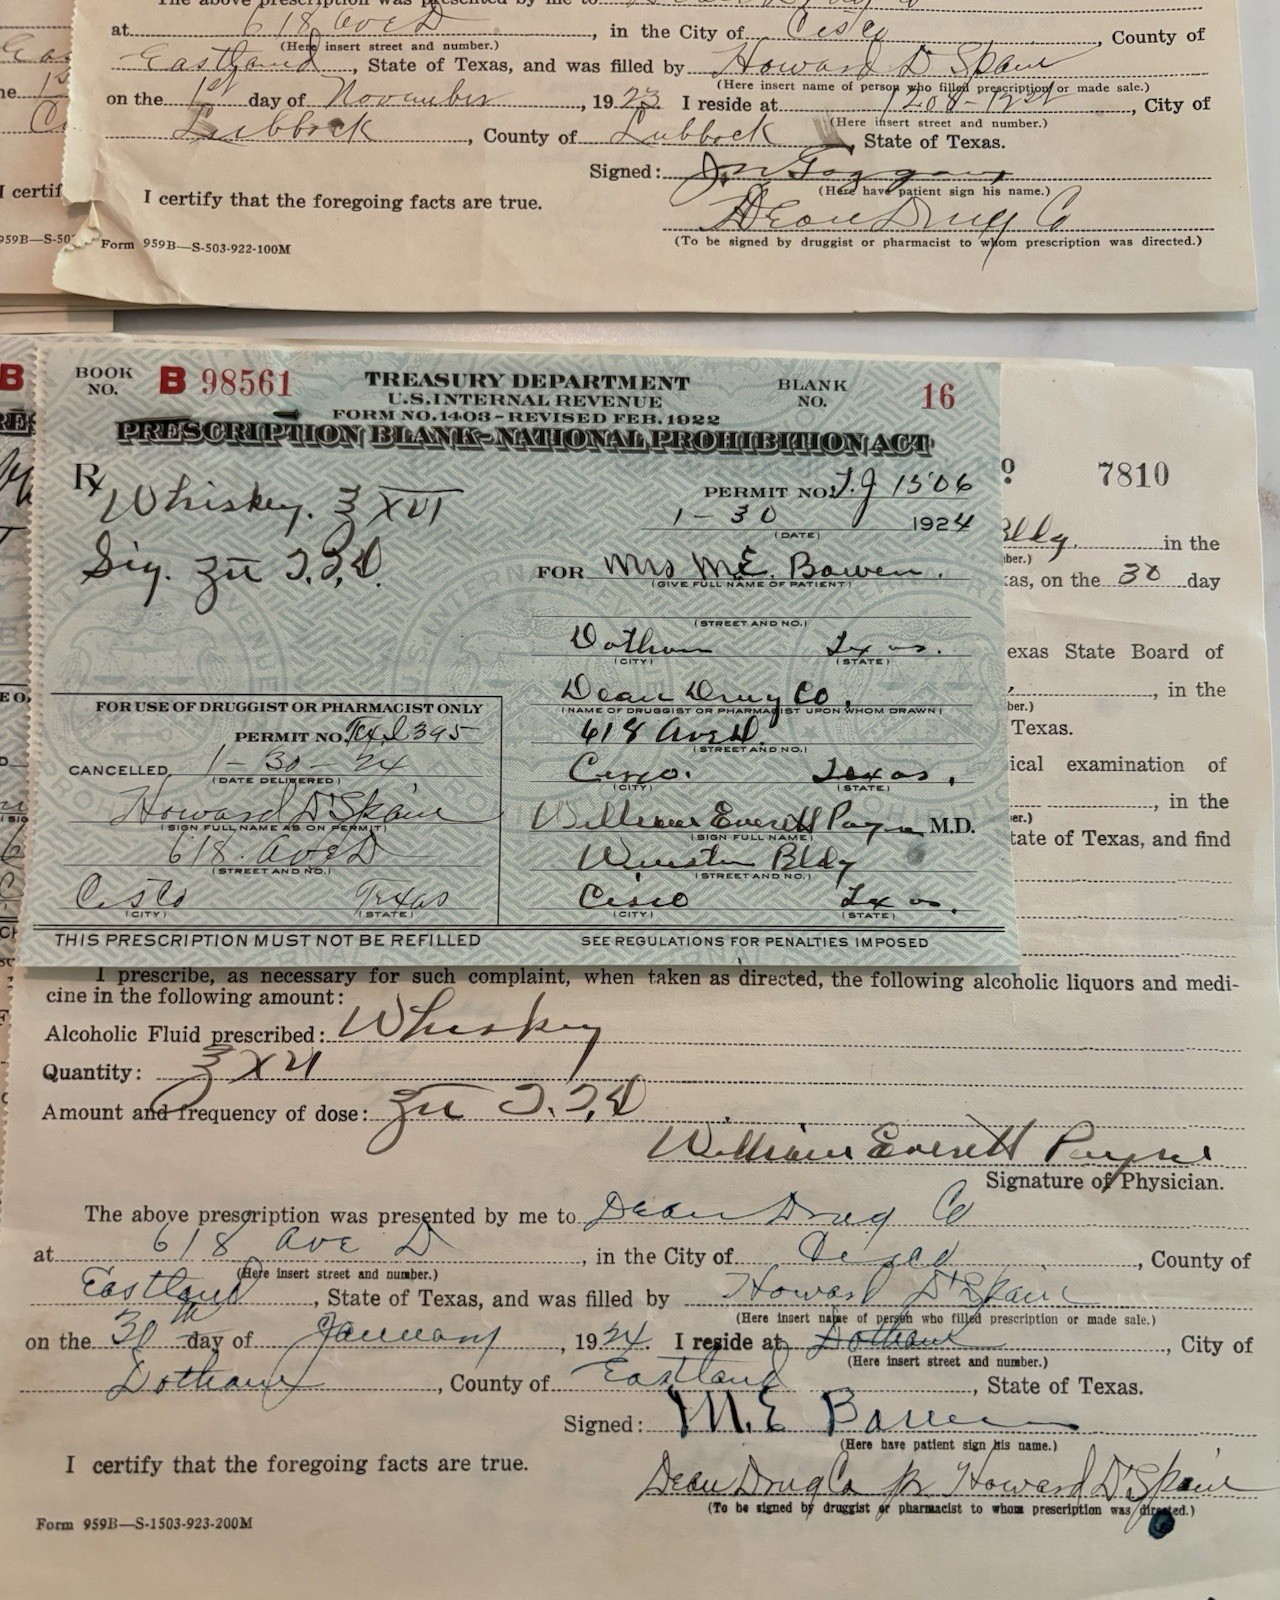 The above prescription was presented by me to
at 618 Ave D, in the City of Cisco, County of
(Here insert street and number.)
Eastland, State of Texas, and was filled by Howard D'Spain
(Here insert name of person who filled prescription or made sale.)
on the 1st day of November, 1923 I reside at 1208-12st, City of
(Here insert street and number.)
Lubbock, County of Lubbock, State of Texas.
Signed:
(Here have patient sign his name.)
I certify that the foregoing facts are true.
Dean Drug Co
(To be signed by druggist or pharmacist to whom prescription was directed.)
Form 959B—S-503-922-100M
I certif
959B—S-50
BOOK NO. B 98561
TREASURY DEPARTMENT
U.S. INTERNAL REVENUE
FORM NO. 1403-REVISED FEB. 1922
BLANK NO. 16
PRESCRIPTION BLANK-NATIONAL PROHIBITION ACT
Rx Whiskey. ʒ XVI
Sig. ʒii T.I.D.
PERMIT NO. 1506
1-30 1924
(DATE)
FOR Mrs M.E. Bowen.
(GIVE FULL NAME OF PATIENT)
(STREET AND NO.)
Dothan Texas.
(CITY) (STATE)
Dean Drug Co.
(NAME OF DRUGGIST OR PHARMACIST UPON WHOM DRAWN)
618 Ave D.
(STREET AND NO.)
Cisco. Texas.
(CITY) (STATE)
William Everett Payne M.D.
(SIGN FULL NAME)
Winston Bldg
(STREET AND NO.)
Cisco Texas.
(CITY) (STATE)
FOR USE OF DRUGGIST OR PHARMACIST ONLY
PERMIT NO. 395
CANCELLED 1-30-24
(DATE DELIVERED)
Howard D'Spain
(SIGN FULL NAME AS ON PERMIT)
618. Ave D
(STREET AND NO.)
Cisco Texas
(CITY) (STATE)
THIS PRESCRIPTION MUST NOT BE REFILLED
SEE REGULATIONS FOR PENALTIES IMPOSED
7810
Bldg. in the
ber.)
as, on the 30 day
exas State Board of
, in the
ber.)
Texas.
ical examination of
, in the
er.)
tate of Texas, and find
I prescribe, as necessary for such complaint, when taken as directed, the following alcoholic liquors and medi-
cine in the following amount:
Alcoholic Fluid prescribed: Whiskey
Quantity: ʒ XVI
Amount and frequency of dose: ʒii T.I.D
William Everett Payne
Signature of Physician.
The above prescription was presented by me to Dean Drug Co
at 618 Ave D, in the City of Cisco, County of
(Here insert street and number.)
Eastland, State of Texas, and was filled by Howard D'Spain
(Here insert name of person who filled prescription or made sale.)
on the 30th day of January, 1924. I reside at Dothan, City of
(Here insert street and number.)
Dothan, County of Eastland, State of Texas.
Signed: M.E Bowen
(Here have patient sign his name.)
I certify that the foregoing facts are true.
Dean Drug Co pr Howard D'Spain
(To be signed by druggist or pharmacist to whom prescription was directed.)
Form 959B—S-1503-923-200M